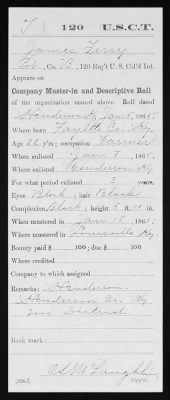 T | 120 | U.S.C.T.
James Terry
Pvt, Co. B, 120 Reg't U. S. Col'd Inf.
Appears on
Company Muster-in and Descriptive Roll
of the organization named above. Roll dated
Henderson Ky Jan 8, 1865.
Where born Fayette Co. Ky
Age 22 y'rs; occupation Farmer
When enlisted Jan 8, 1865.
Where enlisted Henderson Ky
For what period enlisted 3 years.
Eyes Black; hair Black
Complexion Black; height 5 ft. in.
When mustered in Jan 8, 1865.
Where mustered in Louisville Ky
Bounty paid $ 100; due $ 100
Where credited
Company to which assigned
Remarks: Henderson
Henderson Co. Ky
2nd District
Book mark:
McLaughlin
Copyist.